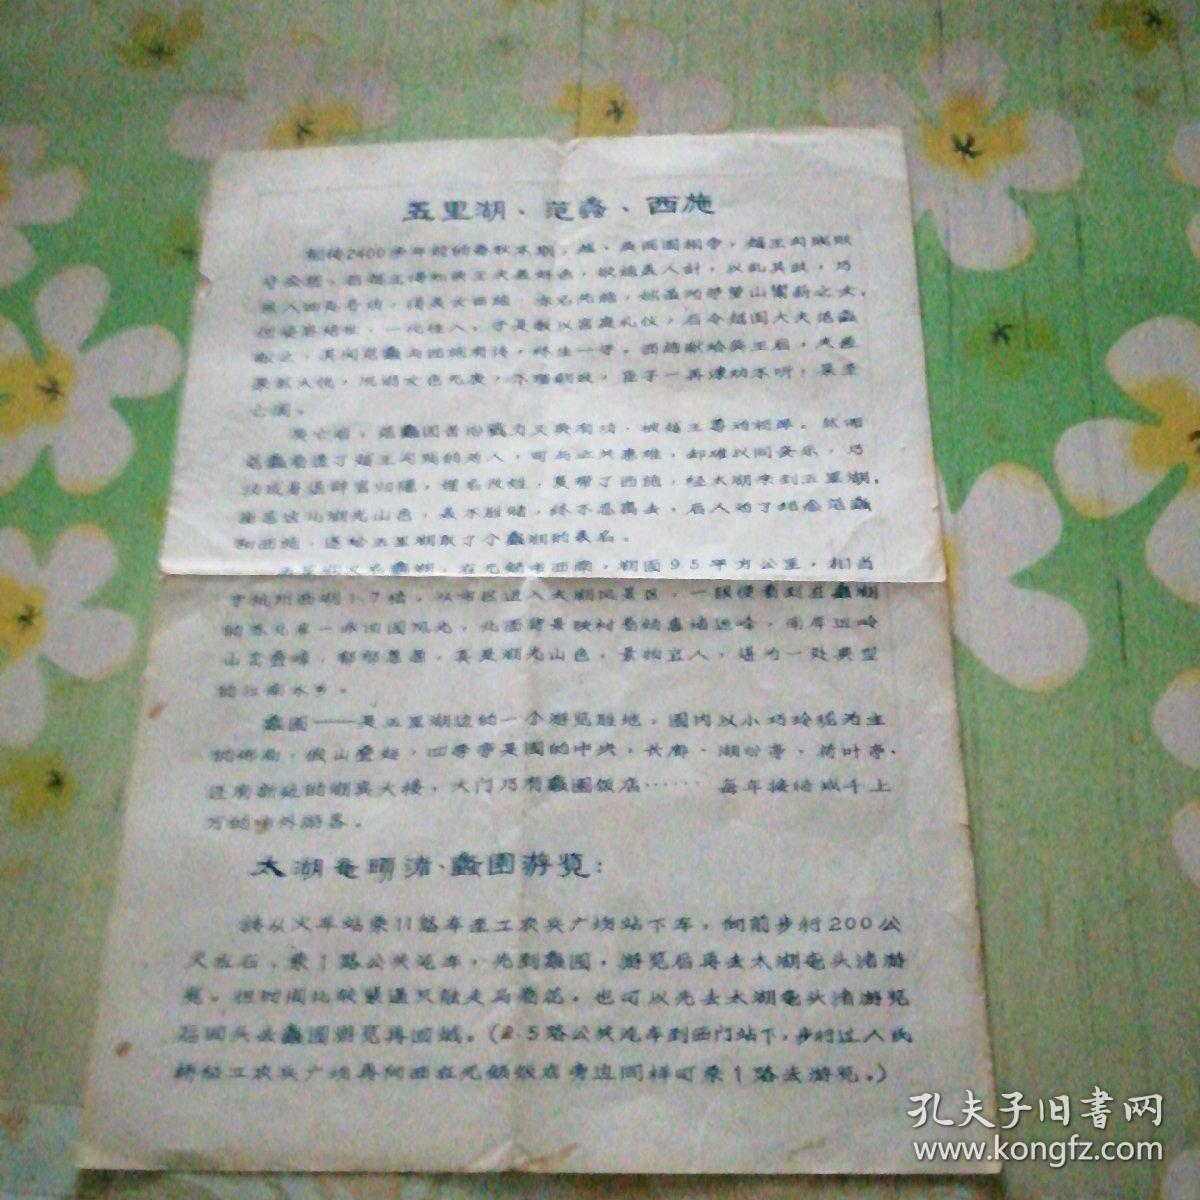 五里湖、范蠡、西施
相传2400多年前的春秋末期，越、吴两国相争，越王勾践败
于会稽。后越王得知吴王夫差好色，欲施美人计，以乱其政，乃
派人四处寻访，得美女西施，亦名先施，她虽为苎萝山鬻薪之女，
但姿容绝世，一代佳人，于是教以宫庭礼仪，后令越国大夫范蠡
献之，其间范蠡与西施有情，终生一寻。西施献给吴王后，夫差
亡国。
吴亡后，范蠡因苦心戮力又映有功，被越王尊为相卿。然而
范蠡看透了越王勾践的为人，可与之共患难，却难以同安乐，乃
功成身退辞官归隐，埋名改姓，复带了西施，经太湖来到五里湖，
接恋这儿湖光山色，美不胜睹，终不忍离去，后人为了纪念范蠡
和西施，遂给五里湖取了个蠡湖的美名。
五里湖又名蠡湖，在无锡市西南，湖面9.5平方公里，相当
于杭州西湖1.7倍，从市区进入太湖风景区，一眼便看到在蠡湖
的东北岸一派田园风光，北面背景映衬着的惠诸远峰，南岸远岭
山峦叠嶂，郁郁葱葱，真是湖光山色，景物宜人，堪为一处典型
的江南水乡。
蠡园——是五里湖边的一个游览胜地，园内以小巧玲珑为主
的佈局，假山叠起，四季亭是园的中央，长廊、湖心亭、荷叶亭、
还有新建的湖宾大楼，大门乃有蠡园饭店…… 每年接待成千上
万的中外游客。
太湖鼋头渚、蠡园游览：
请从火车站乘11路车至工农兵广场站下车，向前步行200公
尺左右，乘1路公共汽车，先到蠡园，游览后再去太湖鼋头渚游
览。但时间比较紧逼只能走马看花。也可以先去太湖鼋头渚游览
后回头去蠡园游览再回城。(2.5路公共汽车到西门站下，步行过人民
桥经工农兵广场再向西在无锡饭店旁边同样可乘1路去游览。)
孔夫子旧書网
www.kongfz.com